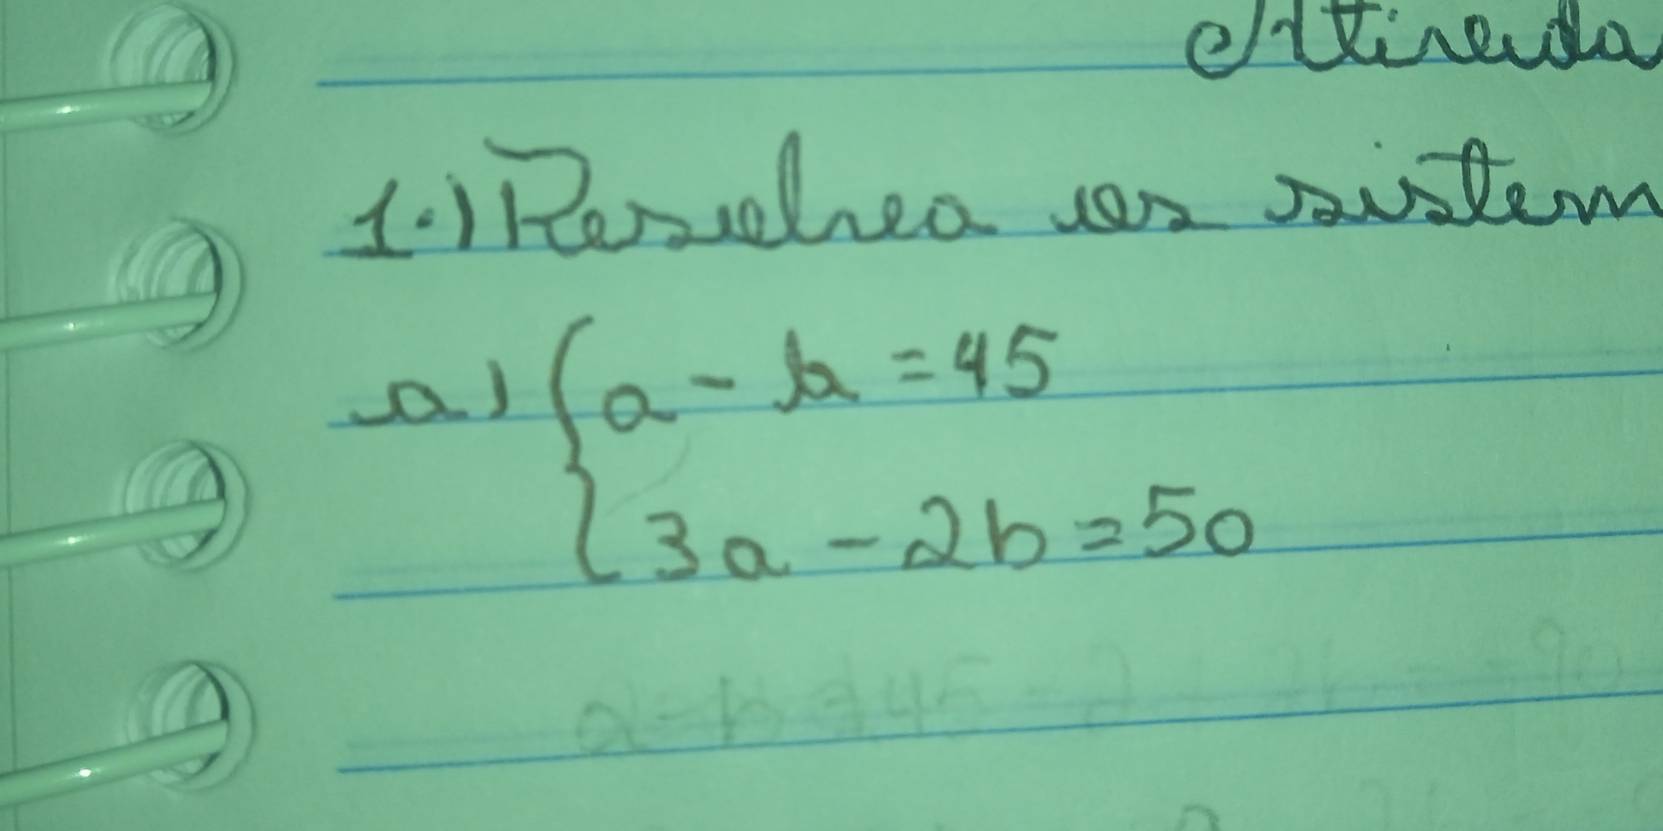 Ativida
1.) Resolva os sistem
a) { a - b = 45
{ 3a - 2b = 50